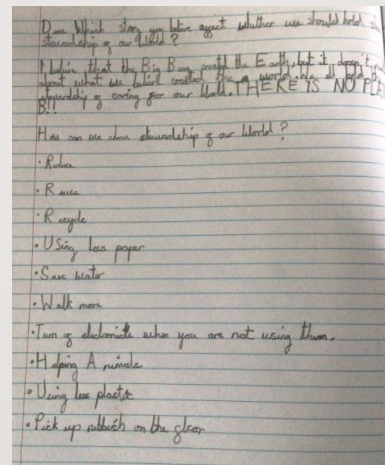 Does Which story you belive affect whether we should hold
stewardship of our World?
I belive that the Big Bang created the Earth, but it doesn't
about what we belief created the world. We all hold the
stewardship of caring for our World. THERE IS NO PLA
B!!
How can we show stewardship of our World?
• Reduce
• Reuse
• Recycle
• Using less paper
• Save water
• Walk more
• Turn of electronicts when you are not using them.
• Helping Animals
• Using less plastic
• Pick up rubbish on the floor